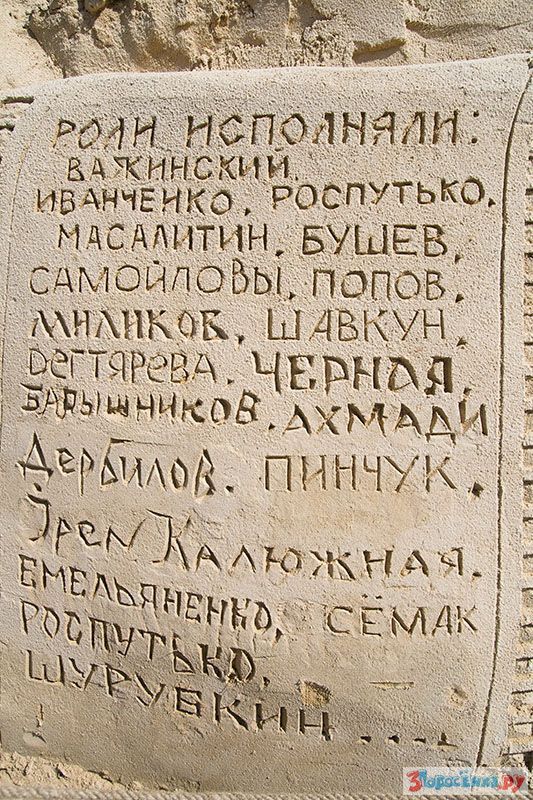 РОЛИ ИСПОЛНЯЛИ:
ВАЖИНСКИЙ.
ИВАНЧЕНКО. РОСПУТЬКО.
МАСАЛИТИН. БУШЕВ,
САМОЙЛОВЫ, ПОПОВ,
МИЛИКОВ, ШАВКУН,
ДЕГТЯРЕВА. ЧЕРНАЯ.
БАРЫШНИКОВ. АХМАДИ
Дербилов. ПИНЧУК.
Ірен КАЛЮЖНАЯ.
ЕМЕЛЬЯНЕНКО, СЁМАК
РОСПУТЬКО,
ШУРУБКИН ....
3Поросёнка.ру